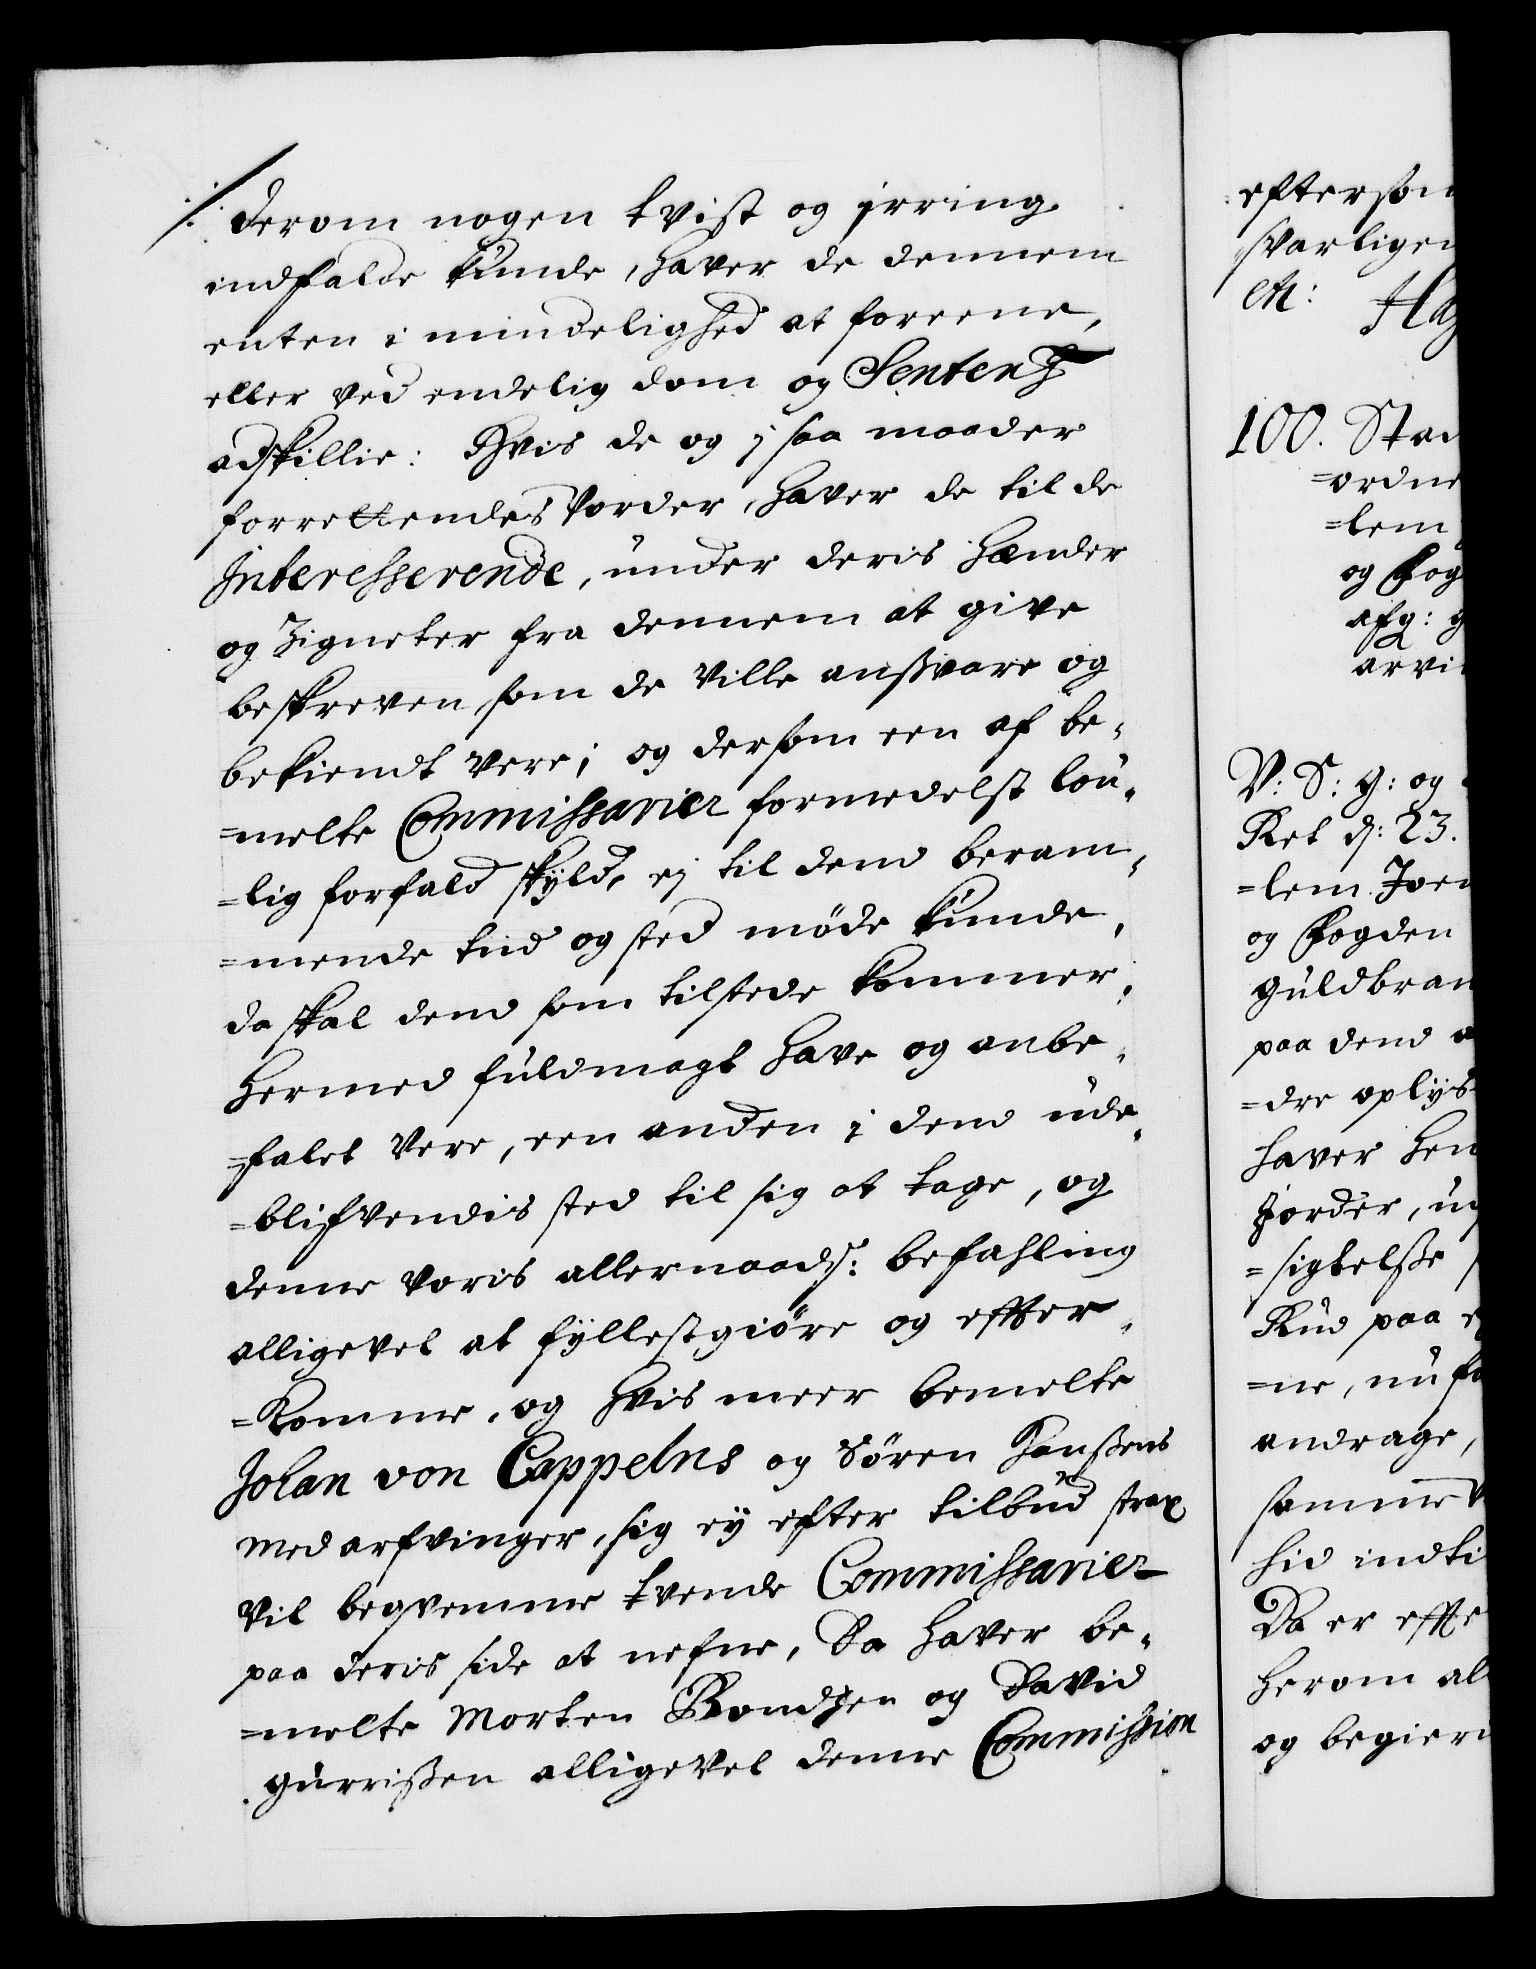 derom nogen tvist og irring
indfalde kunde, haver de dennem
enten i mindelighed at foreene,
eller ved endelig dom og Sententz
adskillie: Hvis de og i saa maader
forrettendes vorder, haver de til de
Interesserende, under deris hænder
og Zigneter fra dennem at give
beskreven, som de ville ansvare og
bekiendt vere; og dersom een af be-
=melte Commissarier formedelst lou-
=lig forfald skyld, ej til dend beram-
=mende tiid og sted møde kunde,
da skal dend som tilstede kommer,
hermed fuldmagt have og anbe-
=falet vere, een anden i dend ude-
=blifvendis sted til sig at tage, og
denne voris allernaadg: befahling
alligevel at fyllestgiøre og effter-
=komme, og hvis meer bemelte
Johan von Cappelns og Søren Hanssens
med arfvinger, sig ey efter tilbud strax
vil beqvemme tvende Commissarier
paa deris side at nefne, Da haver be-
=melte Morten Rondzen og David
Gurrissen alligevel denne Commission
eftersom
svarligen
etc: Hag
100. Stad
=ordne
=lem
og Fog
afg: g
arvi
V: S: G: og
Ret d: 23.
=lem Joen
og Fogden
Guldbran
paa dend a
=dre oplys
haver hen
Jorder, u
=sigtelsse
Rud paa e
=ne, nu fo
andrage,
samme v
hid indti
Da er effte
herom al
og begiern